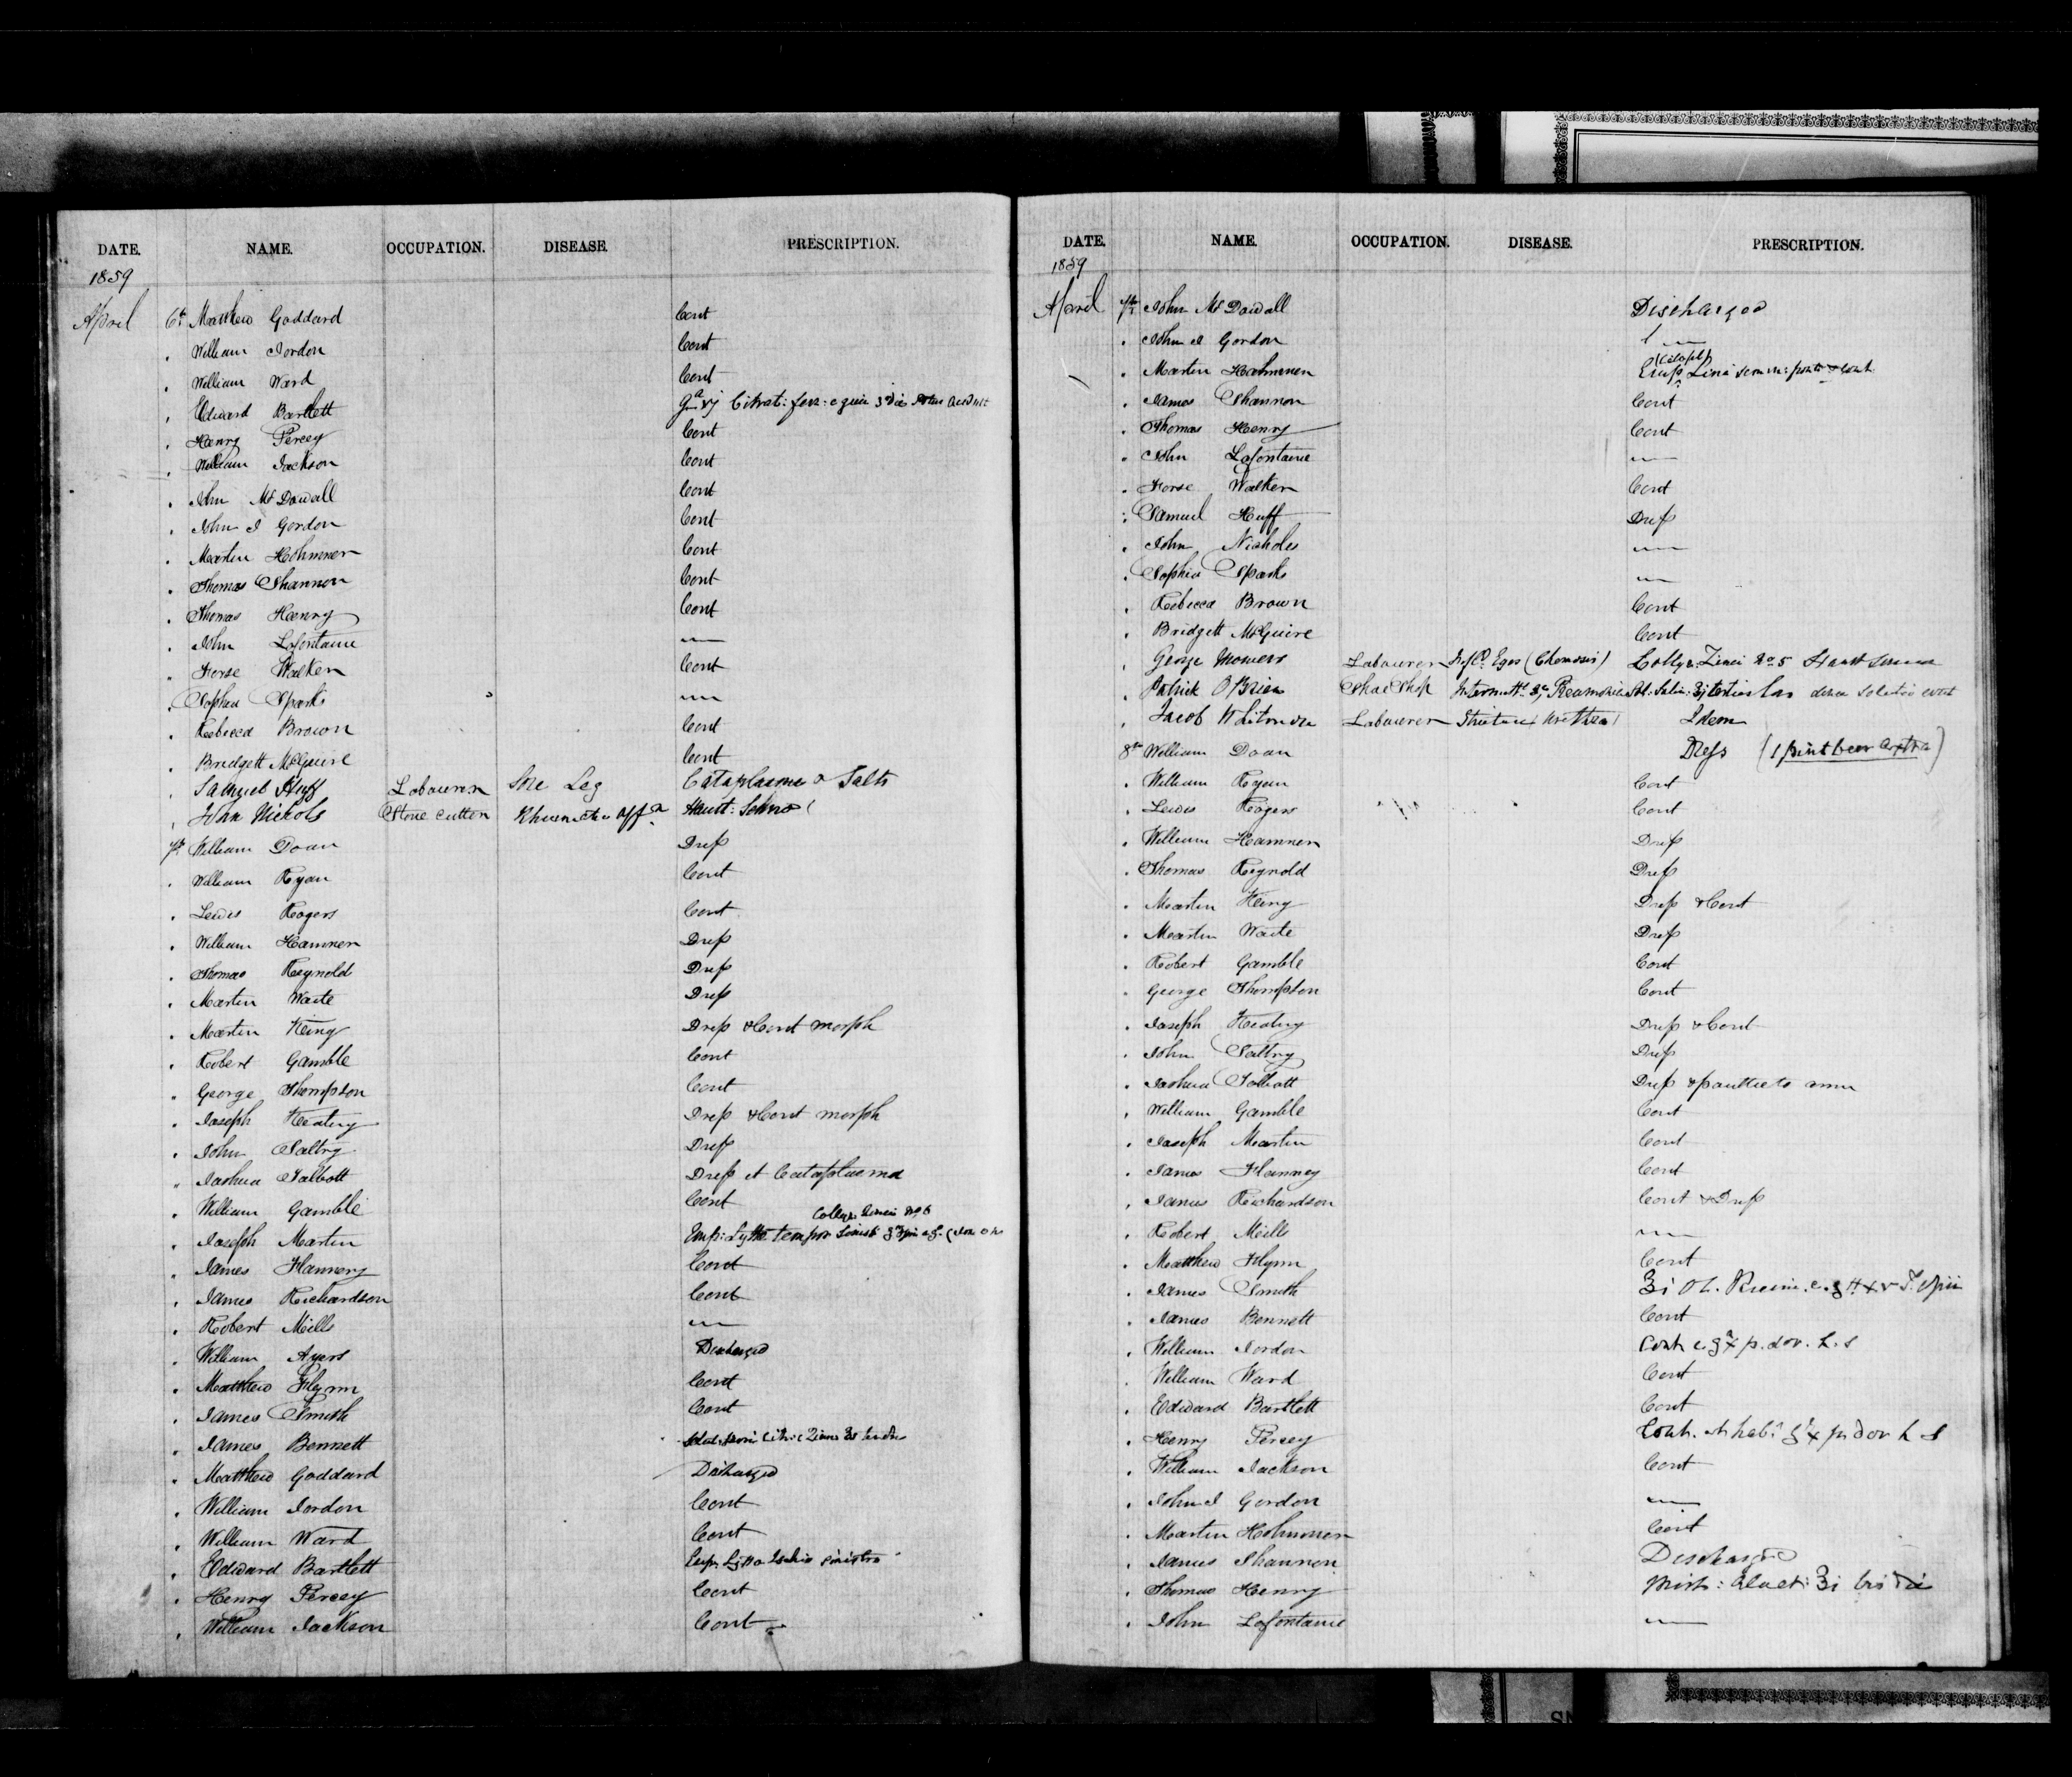 DATE. NAME. OCCUPATION. DISEASE. PRESCRIPTION.
1859
April 6th Matthew Goddard Cont
" William Jordon Cont
" William Ward Cont
" Edward Bartlett Citrat: ferr: e quin
" Henry Percey Cont
" William Jackson Cont
" John McDowall Cont
" John J Gordon Cont
" Martin Hohmmer Cont
" Thomas Shannon Cont
" Thomas Henry Cont
" John Lafontaine —
" Horse Walker Cont
" Sophia Sparks —
" Rebecca Brown Cont
" Bridgett McGuire Cont
" Samuel Huff Labourer Sore Leg Cataplasma & Salts
" John Nichols Stone cutter Haust: Senna
7th William Doan Dress
" William Ryan Cont
" Lewis Rogers Cont
" William Hamner Dress
" Thomas Reynold Dress
" Martin Waite Dress
" Martin King Dress & Cont morph
" Robert Gamble Cont
" George Thompson Cont
" Joseph Keating Dress & Cont morph
" John Saltry Dress
" Joshua Talbott Dress et Cataplasma
" William Gamble Cont
Collyr Zinci No 5
" Joseph Martin Emp: Lyttæ
" James Flannery Cont
" James Richardson Cont
" Robert Mills —
" William Ayers Discharged
" Matthew Flynn Cont
" James Smith Cont
" James Bennett
" Matthew Goddard Discharged
" William Jordon Cont
" William Ward Cont
" Edward Bartlett Emp Lyttæ Ischio sinistro
" Henry Percey Cont
" William Jackson Cont
DATE. NAME. OCCUPATION. DISEASE. PRESCRIPTION.
1859
April 7th John McDowall Discharged
" John J Gordon —
" Martin Hohmmer
" James Shannon Cont
" Thomas Henry Cont
" John Lafontaine —
" Horse Walker Cont
" Samuel Huff Dress
" John Nichols —
" Sophia Sparks —
" Rebecca Brown Cont
" Bridgett McGuire Cont
" George Mowers Labourer Eyes (Chemosis) Collyr Zinci No 5 Haust Senna
" Patrick O'Brien Shoe Shop
" Jacob Labourer Stricture Urethra Idem
8th William Doan Dress (1 pint beer extra)
" William Ryan Cont
" Lewis Rogers Cont
" William Hamner Dress
" Thomas Reynold Dress
" Martin King Dress & Cont
" Martin Waite Dress
" Robert Gamble Cont
" George Thompson Cont
" Joseph Keating Dress & Cont
" John Saltry Dress
" Joshua Talbott Dress & poultice to arm
" William Gamble Cont
" Joseph Martin Cont
" James Flanney Cont
" James Richardson Cont & Dress
" Robert Mills —
" Matthew Flynn Cont
" James Smith ʒi Ol. Ricini. c. gtt xv Tr Opii
" James Bennett Cont
" William Jordon Cont c. gr x p. dov. h. s
" William Ward Cont
" Edward Bartlett Cont
" Henry Percey Cont. et hab: gr x p. dov h s
" William Jackson Cont
" John J Gordon —
" Martin Hohmmer Cont
" James Shannon Discharged
" Thomas Henry Mist: ʒi bis die
" John Lafontaine —